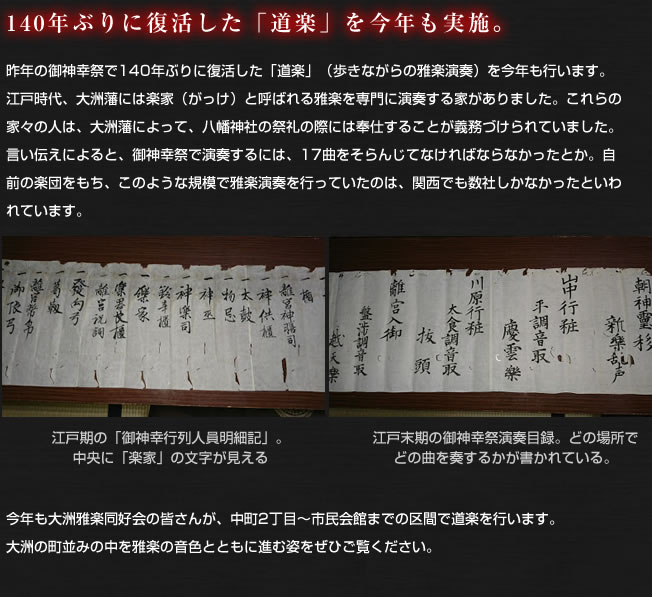 140年ぶりに復活した「道楽」を今年も実施。
昨年の御神幸祭で140年ぶりに復活した「道楽」（歩きながらの雅楽演奏）を今年も行います。
江戸時代、大洲藩には楽家（がっけ）と呼ばれる雅楽を専門に演奏する家がありました。これらの
家々の人は、大洲藩によって、八幡神社の祭礼の際には奉仕することが義務づけられていました。
言い伝えによると、御神幸祭で演奏するには、17曲をそらんじてなければならなかったとか。自
前の楽団をもち、このような規模で雅楽演奏を行っていたのは、関西でも数社しかなかったといわ
れています。
一離宮神膳司
一神供櫃
一太鼓
一物忌
一神巫
一神楽司
一鈴辛櫃
一樂家
一樂器長櫃
一離宮祝詞
朝神靈移
新樂乱声
山中行粧
平調音取
慶雲樂
川原行粧
太食調音取
抜頭
離宮入御
盤渉調音取
越天樂
江戸期の「御神幸行列人員明細記」。
中央に「楽家」の文字が見える
江戸末期の御神幸祭演奏目録。どの場所で
どの曲を奏するかが書かれている。
今年も大洲雅楽同好会の皆さんが、中町2丁目～市民会館までの区間で道楽を行います。
大洲の町並みの中を雅楽の音色とともに進む姿をぜひご覧ください。